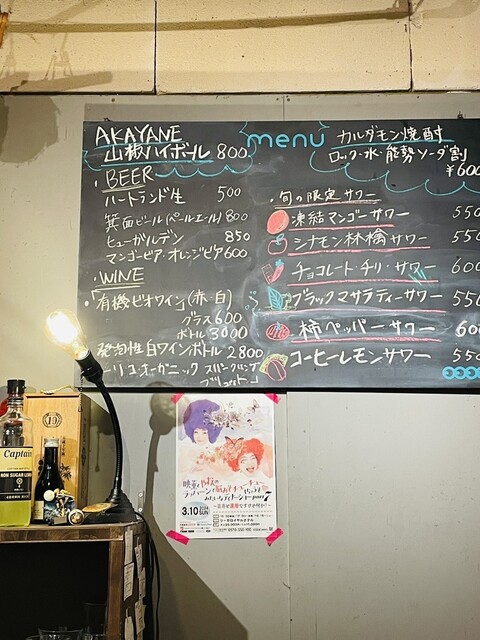 AKAYANE
山椒ハイボール 800
・BEER
ハートランド生 500
箕面ビール(ペールエール) 800
ヒューガルデン 850
マンゴービア・オレンジビア 600
・WINE
「有機ビオワイン」(赤・白)
グラス 600
ボトル 3000
発泡性白ワインボトル 2800
オーガニック スパークリング
menu
カルダモン焼酎
ロック・水・能勢ソーダ割
¥600
・旬の限定サワー
凍結マンゴーサワー 550
シナモン林檎サワー 550
チョコレート・チリ・サワー 600
ブラックマサラティーサワー 550
柿ペッパーサワー 600
コーヒーレモンサワー 550
Captain
NON SUGAR LEMON
part 7
3.10
SUN